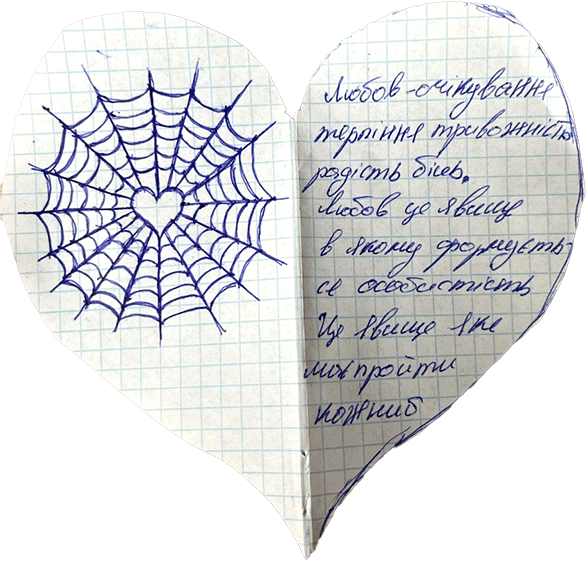 Любов - очікування
терпіння тривожність
радість біль.
Любов це явище
в якому формуєть-
ся особистість
Це явище яке
має пройти
кожний